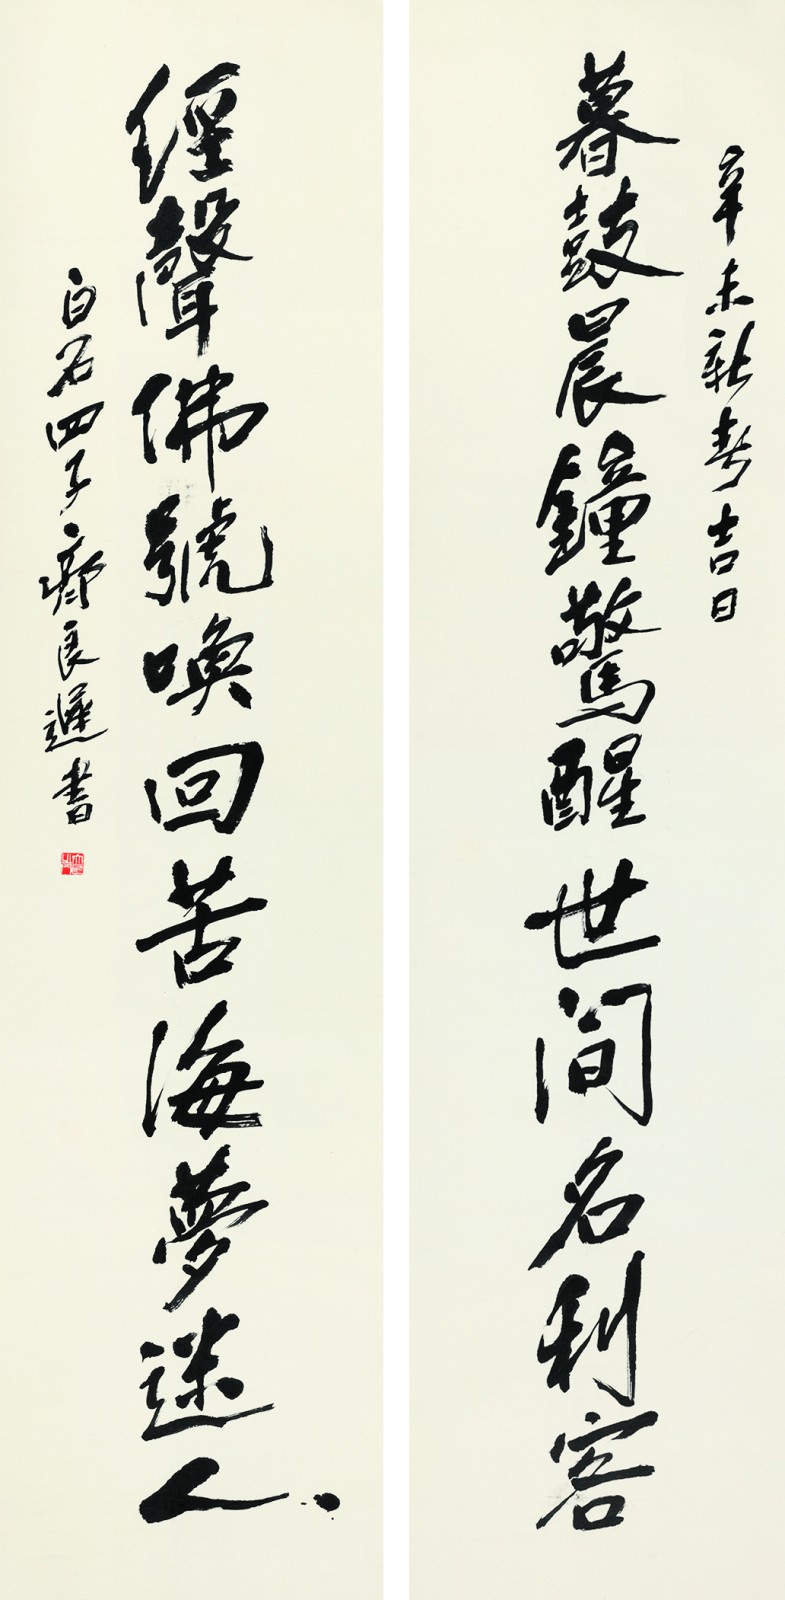 辛未新春吉日
暮鼓晨鐘驚醒世间名利客
經聲佛號喚回苦海夢迷人
白石四子齊良遲書